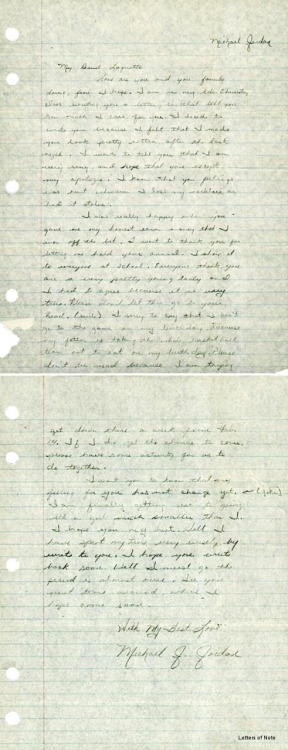 Michael Jordan
My Dearest Laquette
How are you and your family
doing, fine I hope. I am in my Adv. Chemistry
class writing you a letter, so that tell you
how much I care for you. I decide to
write you because I felt that I made
you look pretty rotten after the last
night. I want to tell you that I am
very sorry, and hope that you accept
my apologie. I know that you feelings
was hurt whenever I lost my necklace or
had it stolen.
I was really happy when you
gave me my honest coin money that I
won off the bet. I want to thank you for
letting me hold your annual. I show it
to everyone at school. Everyone think you
are a very pretty young lady and
I had to agree because it is very
true. Please don't let this go to your
head. (smile) I sorry to say that I can't
go to the game on my birthday because
my father is taking the whole basketball
team out to eat on my birthday. Please
don't be mad because I am trying
get down there a week from Feb.
14. If I do get the chance to come,
please have some activity for us to
do together.
I want you to know that my
feeling for you has not change yet. (joke)
I am finally getting use to going
with a girl much smaller than I.
I hope you
have spent my time very wisely by
write to you. I hope you write
back soon. Well I must go the
period is almost over. See you
next time around which I
hope come soon.
With My Best Love
Michael J. Jordan
Letters of Note